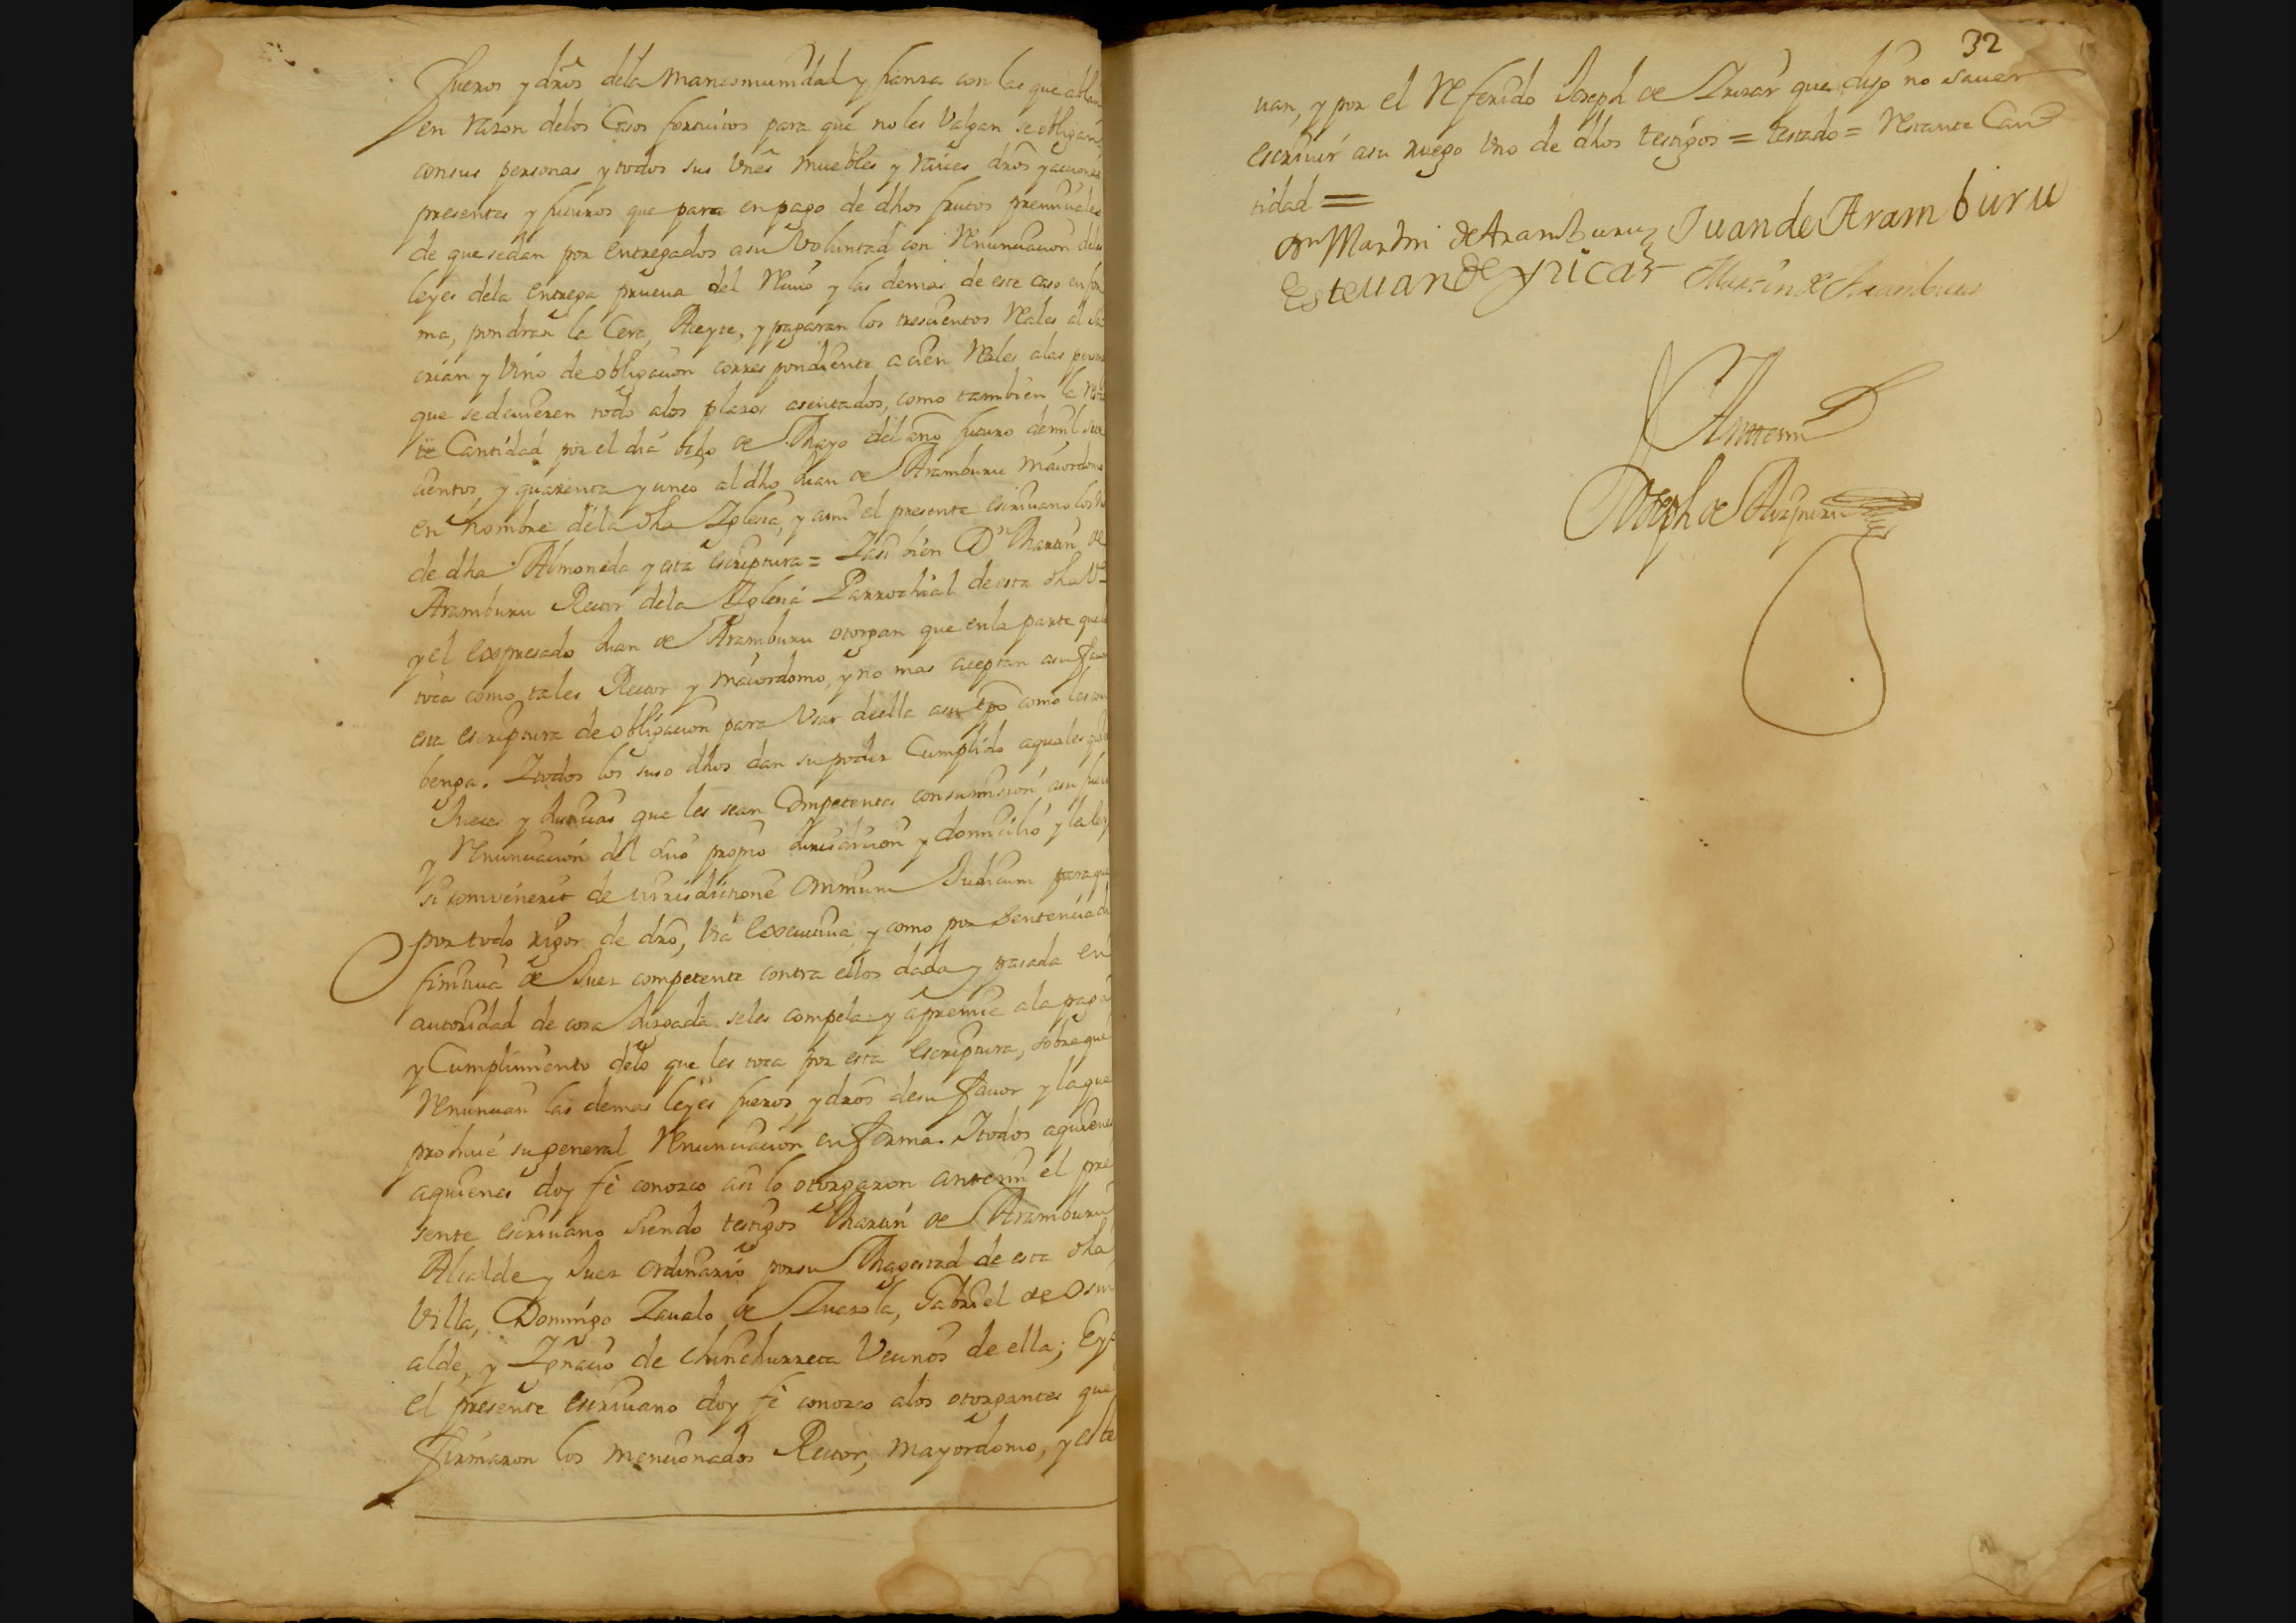 fueros y dros dela Mancomunidad y fianza con las que ablan
en razon delos Casos fortuitos para que no les Valgan se obligan
con sus personas y todos sus Vnes muebles y raices dros y acciones
presentes y futuros que para en pago de dhos frutos
de que se dan por entregados asu Voluntad con Renunciacion delas
leyes dela entrega prueua del Reciuo y las demas de este caso en for
ma, pondran la Cera, Aceyte, y pagaran los trescientos Reales al Sa
cristan y Vino de obligacion correspondiente a cien Reales alas personas
que se deuieren todo alos plazos asentados, como tambien la Res
te Cantidad por el dia de Mayo del año futuro de mil sete
cientos y quarenta y cinco al dho Juan de Aramburu maiordomo
en nombre dela dha Iglesia, y ami el presente escriuano los
de dha Almoneda y esta escriptura = Iasi bien Dn Martin de
Aramburu Rector dela Iglesia Parrochial de esta dha Va
y el expresado Juan de Aramburu otorgan que enla parte que les
toca como tales Rector y maiordomo, y no mas aceptan asu fauor
esta escriptura de obligacion para Vsar de ella asu tpo como les con
benga. Itodos los suso dhos dan su poder Cumplido aquales quier
Jueces y Justicias que les sean Competentes con sumision asu fuero
y Renunciacion del suio propio Jurisdicion y domicilio y la ley
si convenerit de iurisdictione Omnium Judicum para que
por todo rigor de dro, via executiua y como por Sentencia de
finitiua de Juez competente contra ellos dada y pasada en
autoridad de cosa Juzgada seles compela y apremie ala paga
y Cumplimiento delo que les toca por esta escriptura, sobre que
Renuncian las demas leyes fueros y dros desu fauor y la que
prohiue su general Renunciacion en forma. Itodos aquienes
aquienes doy fe conozco asi lo otorgaron antemi el pre
sente escriuano siendo testigos Martin de Aramburu
Alcalde y Juez ordinario por su Magestad de esta dha
Villa, Domingo Zaualo de Zuazola, Gabriel de Osin
alde, y Ignacio de Chinchurreta Vecinos de ella; Eyo
el presente escriuano doy fe conozco alos otorgantes que
firmaron los mencionados Rector, mayordomo, y este
32
uan, y por el Referido Joseph de que dijo no sauer
escriuir asu ruego Vno de dhos testigos = testado = Restante Can
tidad =
Dn Martin de Aramburu Juan de Aramburu
Esteuan de yricar Martin de Aramburu
Antemi
Joseph de